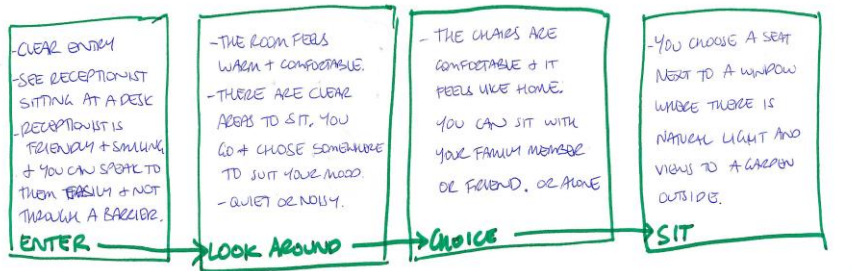 -CLEAR ENTRY
-SEE RECEPTIONIST
SITTING AT A DESK
-RECEPTIONIST IS
FRIENDLY + SMILING
+ YOU CAN SPEAK TO
THEM EASILY + NOT
THROUGH A BARRIER.
ENTER
-THE ROOM FEELS
WARM + COMFORTABLE.
-THERE ARE CLEAR
AREAS TO SIT. YOU
GO + CHOSE SOMEWHERE
TO SUIT YOUR MOOD.
-QUIET OR NOISY.
LOOK AROUND
- THE CHAIRS ARE
COMFORTABLE + IT
FEELS LIKE HOME.
YOU CAN SIT WITH
YOUR FAMILY MEMBER
OR FRIEND, OR ALONE
CHOICE
-YOU CHOOSE A SEAT
NEXT TO A WINDOW
WHERE THERE IS
NATURAL LIGHT AND
VIEWS TO A GARDEN
OUTSIDE.
SIT